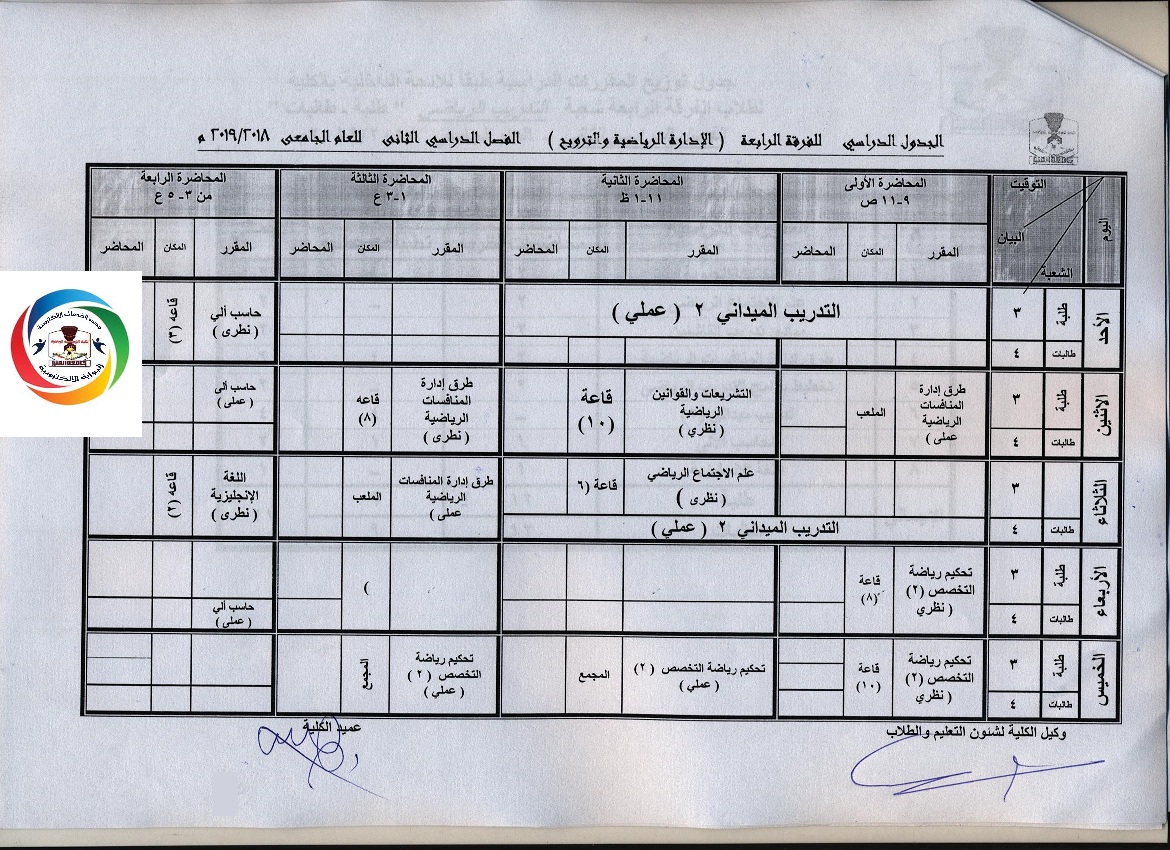 الجدول الدراسي للفرقة الرابعة ( الإدارة الرياضية والترويح ) الفصل الدراسي الثانى للعام الجامعى ٢٠١٩/٢٠١٨ م
اليوم
التوقيت
البيان
الشعبة
المحاضرة الأولى
٩-١١ ص
المحاضرة الثانية
١١-١ ظ
المحاضرة الثالثة
١-٣ ع
المحاضرة الرابعة
من ٣-٥ ع
المقرر المكان المحاضر المقرر المكان المحاضر المقرر المكان المحاضر المقرر المكان المحاضر
الأحد
طلبة ٣
التدريب الميداني ٢ ( عملي )
حاسب ألي
( نطرى )
قاعه (٣)
طالبات ٤
الاثنين
طلبة ٣
طرق إدارة
المنافسات
الرياضية
عملى )
الملعب
التشريعات والقوانين
الرياضية
( نظري )
قاعة
(١٠)
طرق إدارة
المنافسات
الرياضية
( نظرى )
قاعه
(٨)
حاسب ألى
( عملى )
طالبات ٤
الثلاثاء
طلبة ٣
علم الاجتماع الرياضي
( نظرى )
قاعة (٦
طرق إدارة المنافسات
الرياضية
عملى )
الملعب
اللغة
الإنجليزية
( نطرى )
قاعه (٢)
طالبات ٤
التدريب الميداني ٢ ( عملي )
الأربعاء
طلبة ٣
تحكيم رياضة
التخصص (٢)
( نظري
قاعة
(٨)
)
طالبات ٤
حاسب ألي
( عملى )
الخميس
طلبة ٣
تحكيم رياضة
التخصص (٢)
( نظري
قاعة
(١٠)
تحكيم رياضة التخصص (٢)
( عملي )
المجمع
تحكيم رياضة
التخصص (٢)
( عملي )
المجمع
طالبات ٤
وكيل الكلية لشئون التعليم والطلاب
عميد الكلية
البوابة الالكترونية